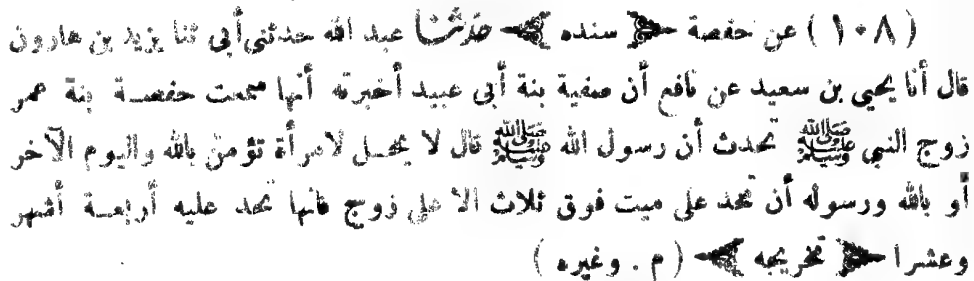 (١٠٨) عن حفصة ﴿ سنده ﴾ حدثنا عبد الله حدثنى أبى ثنا يزيد بن هارون
قال أنا يحيى بن سعيد عن نافع أن صفية بنة أبى عبيد أخبرته أنها سمعت حفصة بنة عمر
زوج النبي ﷺ تحدث أن رسول الله ﷺ قال لا يحل لامرأة تؤمن بالله واليوم الآخر
أو بالله ورسوله أن تحد على ميت فوق ثلاث الا على زوج فانها تحد عليه أربعة أشهر
وعشرا ﴿ تخريجه ﴾ (م . وغيره)